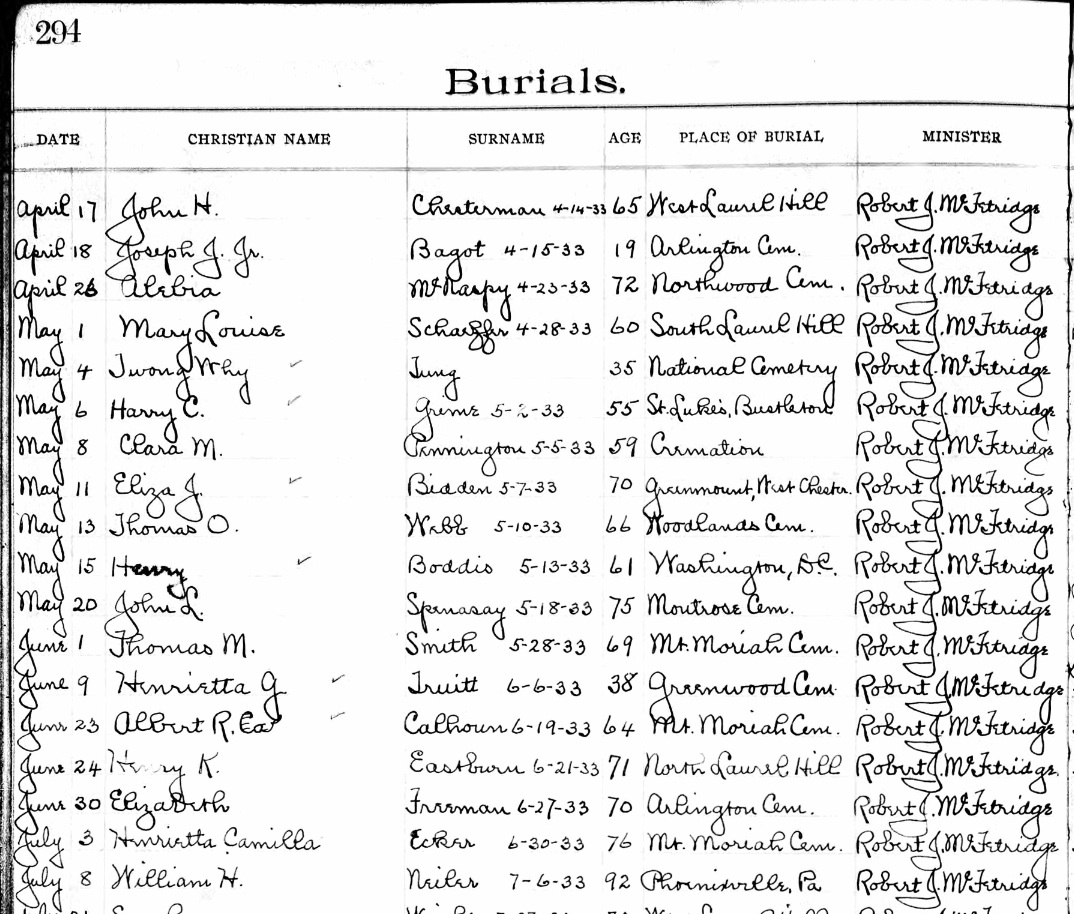 294
Burials.
DATE CHRISTIAN NAME SURNAME AGE PLACE OF BURIAL MINISTER
April 17 John H. Chesterman 4-14-33 65 West Laurel Hill Robert J. McFetridge
April 18 Joseph J. Jr. Bagot 4-15-33 19 Arlington Cem. Robert J. McFetridge
April 26 Alebia McRaspy 4-23-33 72 Northwood Cem. Robert J. McFetridge
May 1 Mary Louise Schaeffer 4-28-33 60 South Laurel Hill Robert J. McFetridge
May 4 Twong Why Tung 35 National Cemetery Robert J. McFetridge
May 6 Harry C. Grime 5-2-33 55 St. Luke's, Bustleton Robert J. McFetridge
May 8 Clara M. Pennington 5-5-33 59 Cremation Robert J. McFetridge
May 11 Eliza J. Bidden 5-7-33 70 Greenmount, West Chester. Robert J. McFetridge
May 13 Thomas O. Webb 5-10-33 66 Woodlands Cem. Robert J. McFetridge
May 15 Henry Boddis 5-13-33 61 Washington, D.C. Robert J. McFetridge
May 20 John L. Spenasay 5-18-33 75 Montrose Cem. Robert J. McFetridge
June 1 Thomas M. Smith 5-28-33 69 Mt. Moriah Cem. Robert J. McFetridge
June 9 Henrietta G Truitt 6-6-33 38 Greenwood Cem. Robert J. McFetridge
June 23 Albert R. Calhoun 6-19-33 64 Mt. Moriah Cem. Robert J. McFetridge
June 24 Henry K. Eastburn 6-21-33 71 North Laurel Hill Robert J. McFetridge
June 30 Elizabeth Freeman 6-27-33 70 Arlington Cem. Robert J. McFetridge
July 3 Henrietta Camilla Ecker 6-30-33 76 Mt. Moriah Cem. Robert J. McFetridge
July 8 William H. Neiler 7-6-33 92 Phoenixville, Pa Robert J. McFetridge